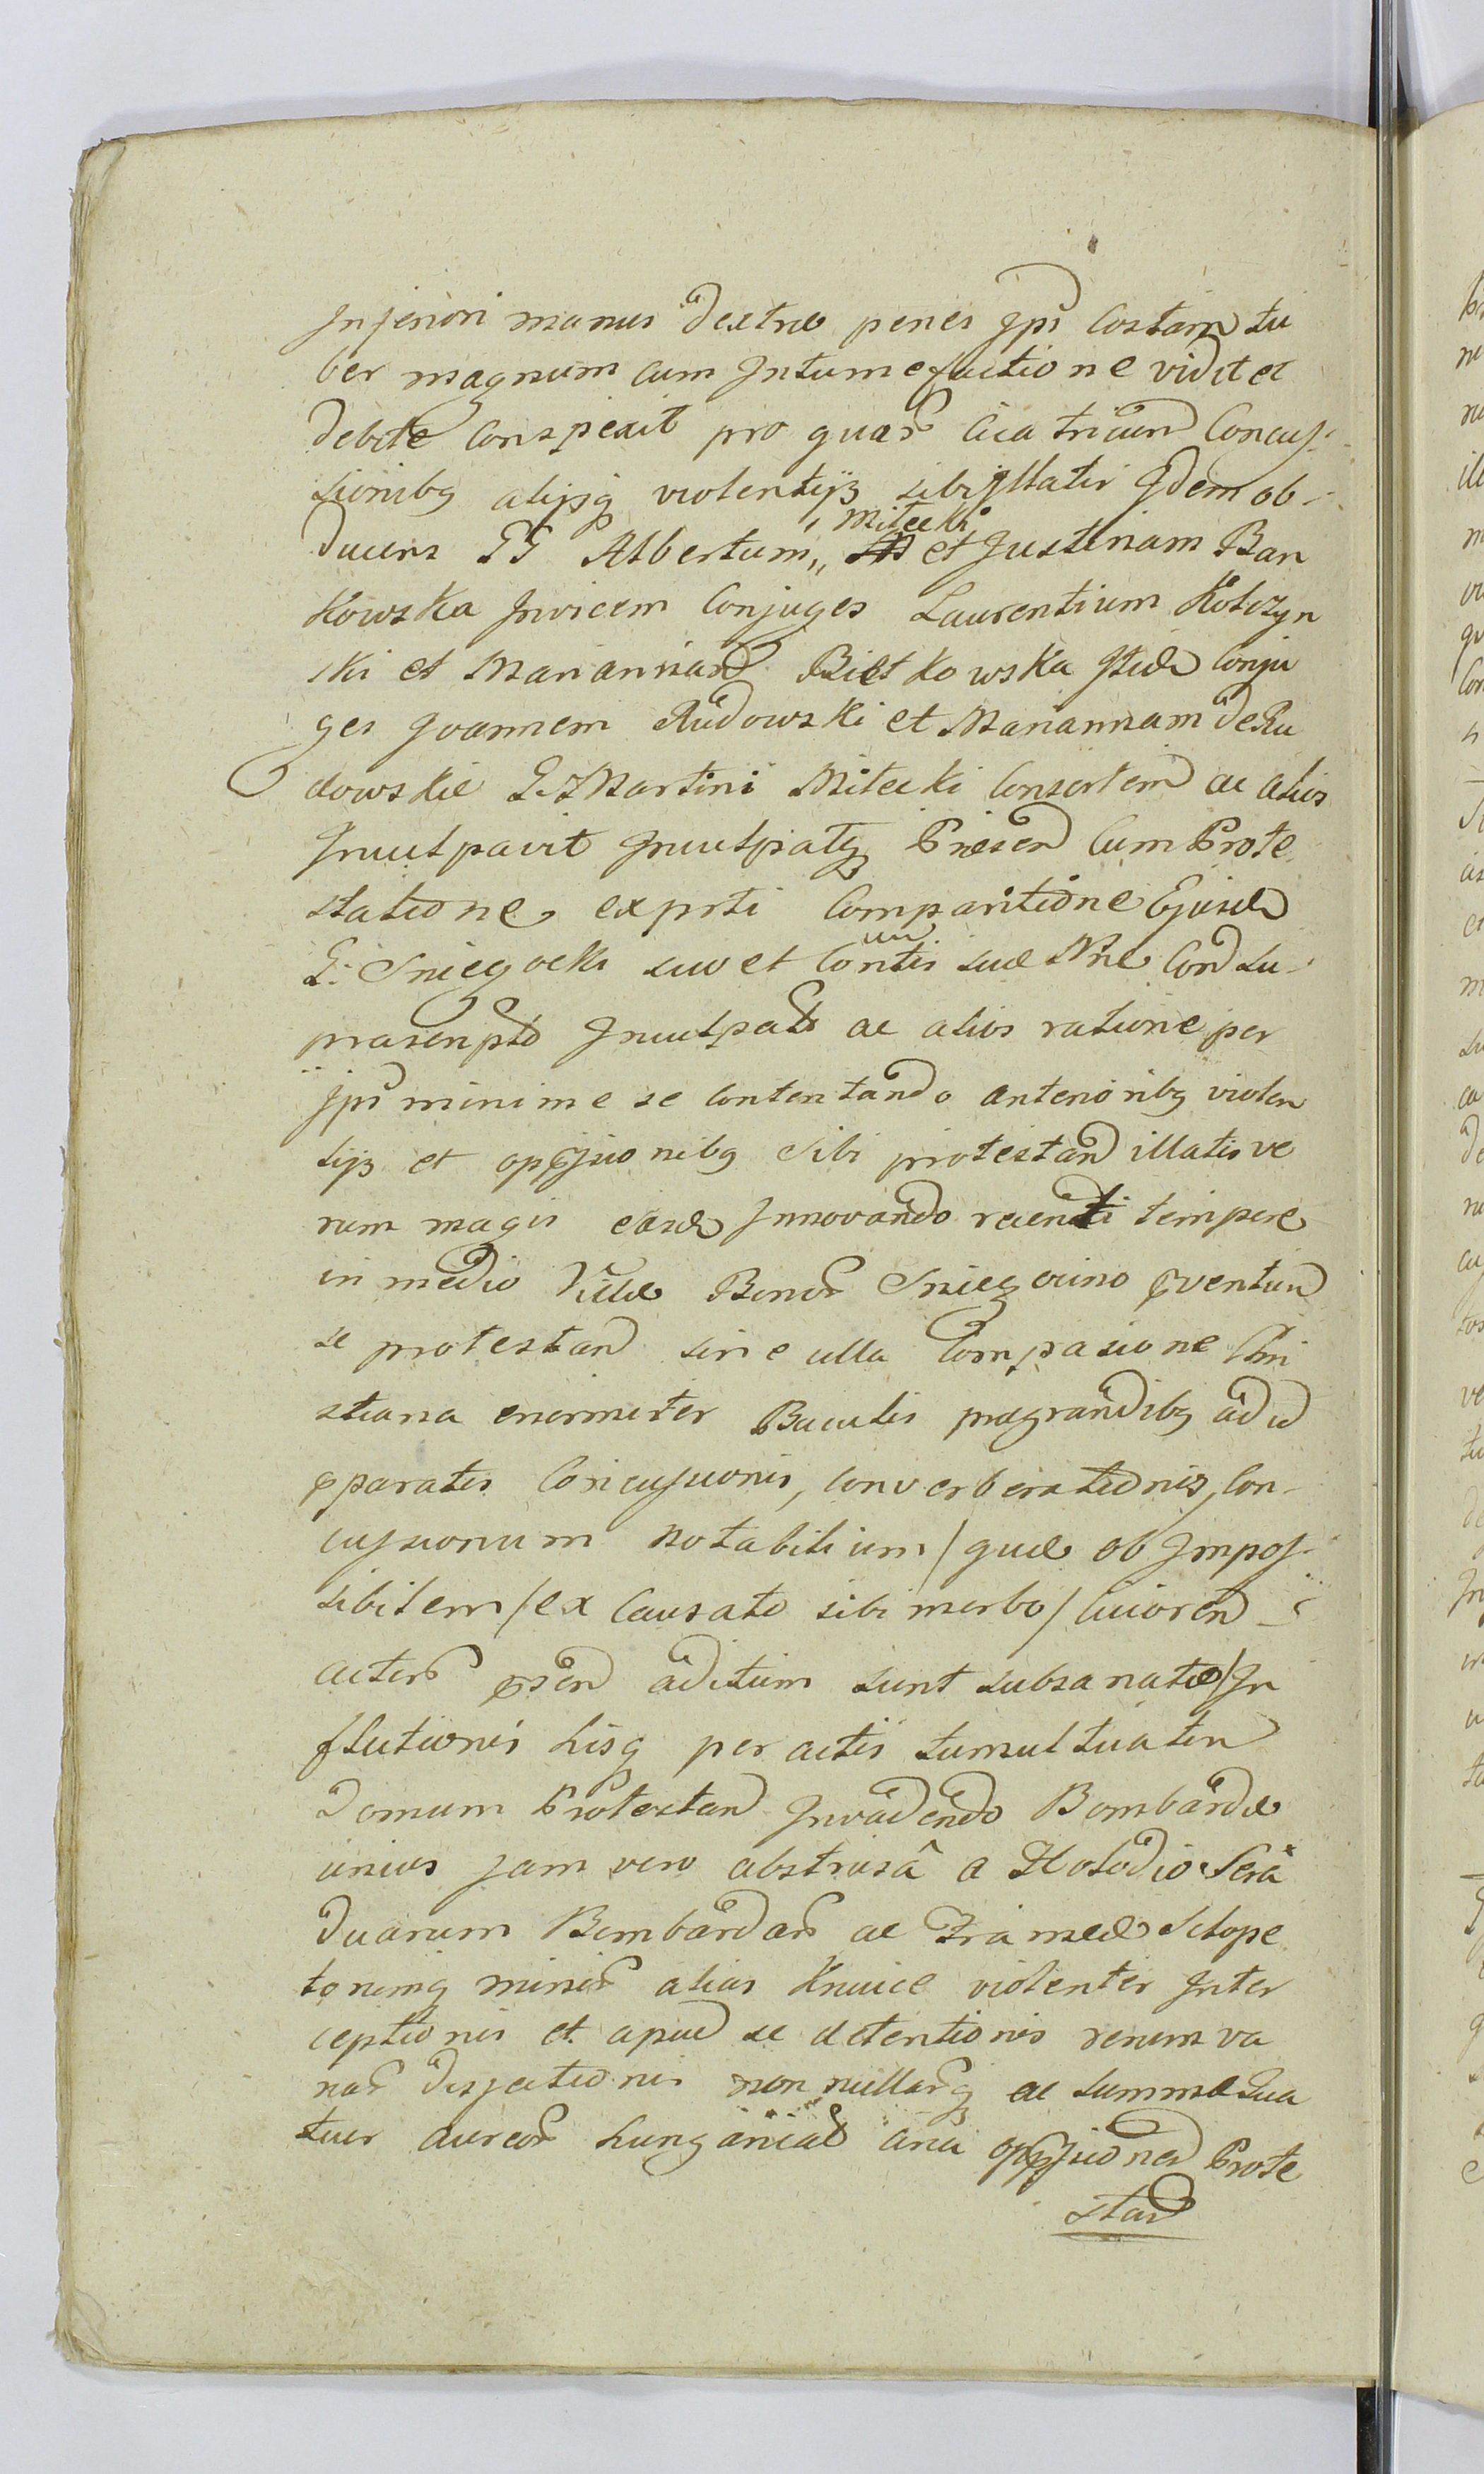 Inferiori manus dextrae penes ips Costam tu
ber magnum cum Intumefactione vidit et
debite Conspexit pro quar Cicatricum Concus-
sionibg alijsq violentijs sibi Illatis Idem ob-
ducens GG Albertum „ Mitecki et Justinam Ban
kowska Invicem Conjuges Laurentium Kolczyn
ski et Mariannam Bietkowska Itid Conju
ges Joannem Rudowski et Mariannam de Ru
dowskie G: Martini Mitecki Consortem ac alios
Inculpavit Inculpatq Praesen Cum Prote
statione exprti Comparitione Ejusd
G: Sniegocki suo et Contis suae Nne Con su-
prascripto Inculpat ac alios ratione per
ips minime se contentando anterioribg violen
tijs et oppssionibg sibi protestan illatis ve
rum magis easd Innovando recenti tempore
in medio Villae Bonor Sniegocino pventum
se protestan sine ulla Compasione Chri
stiana enormiter Baculis praegrandibg ad id
pparatis Concussionis, converberationis, Con-
cussionum notabilium / quae ob Impos-
sibilem / ex Causato sibi morbo /
actor psen aditum sunt subsanatae / In
flictionis hisq peractis tumultuaten
Domum Protestan Invadendo Bombardae
unius jam vero abstrusâ a Holodio Sera
duarum Bombardar ac Frameae Sclope
torumq minor alias Krucice violenter Inter
ceptionis et apud se detentionis rerum va
riar disjectionis non nullarq ac summae Qua
tuor aureor hungarical oppssiones Prote
stan